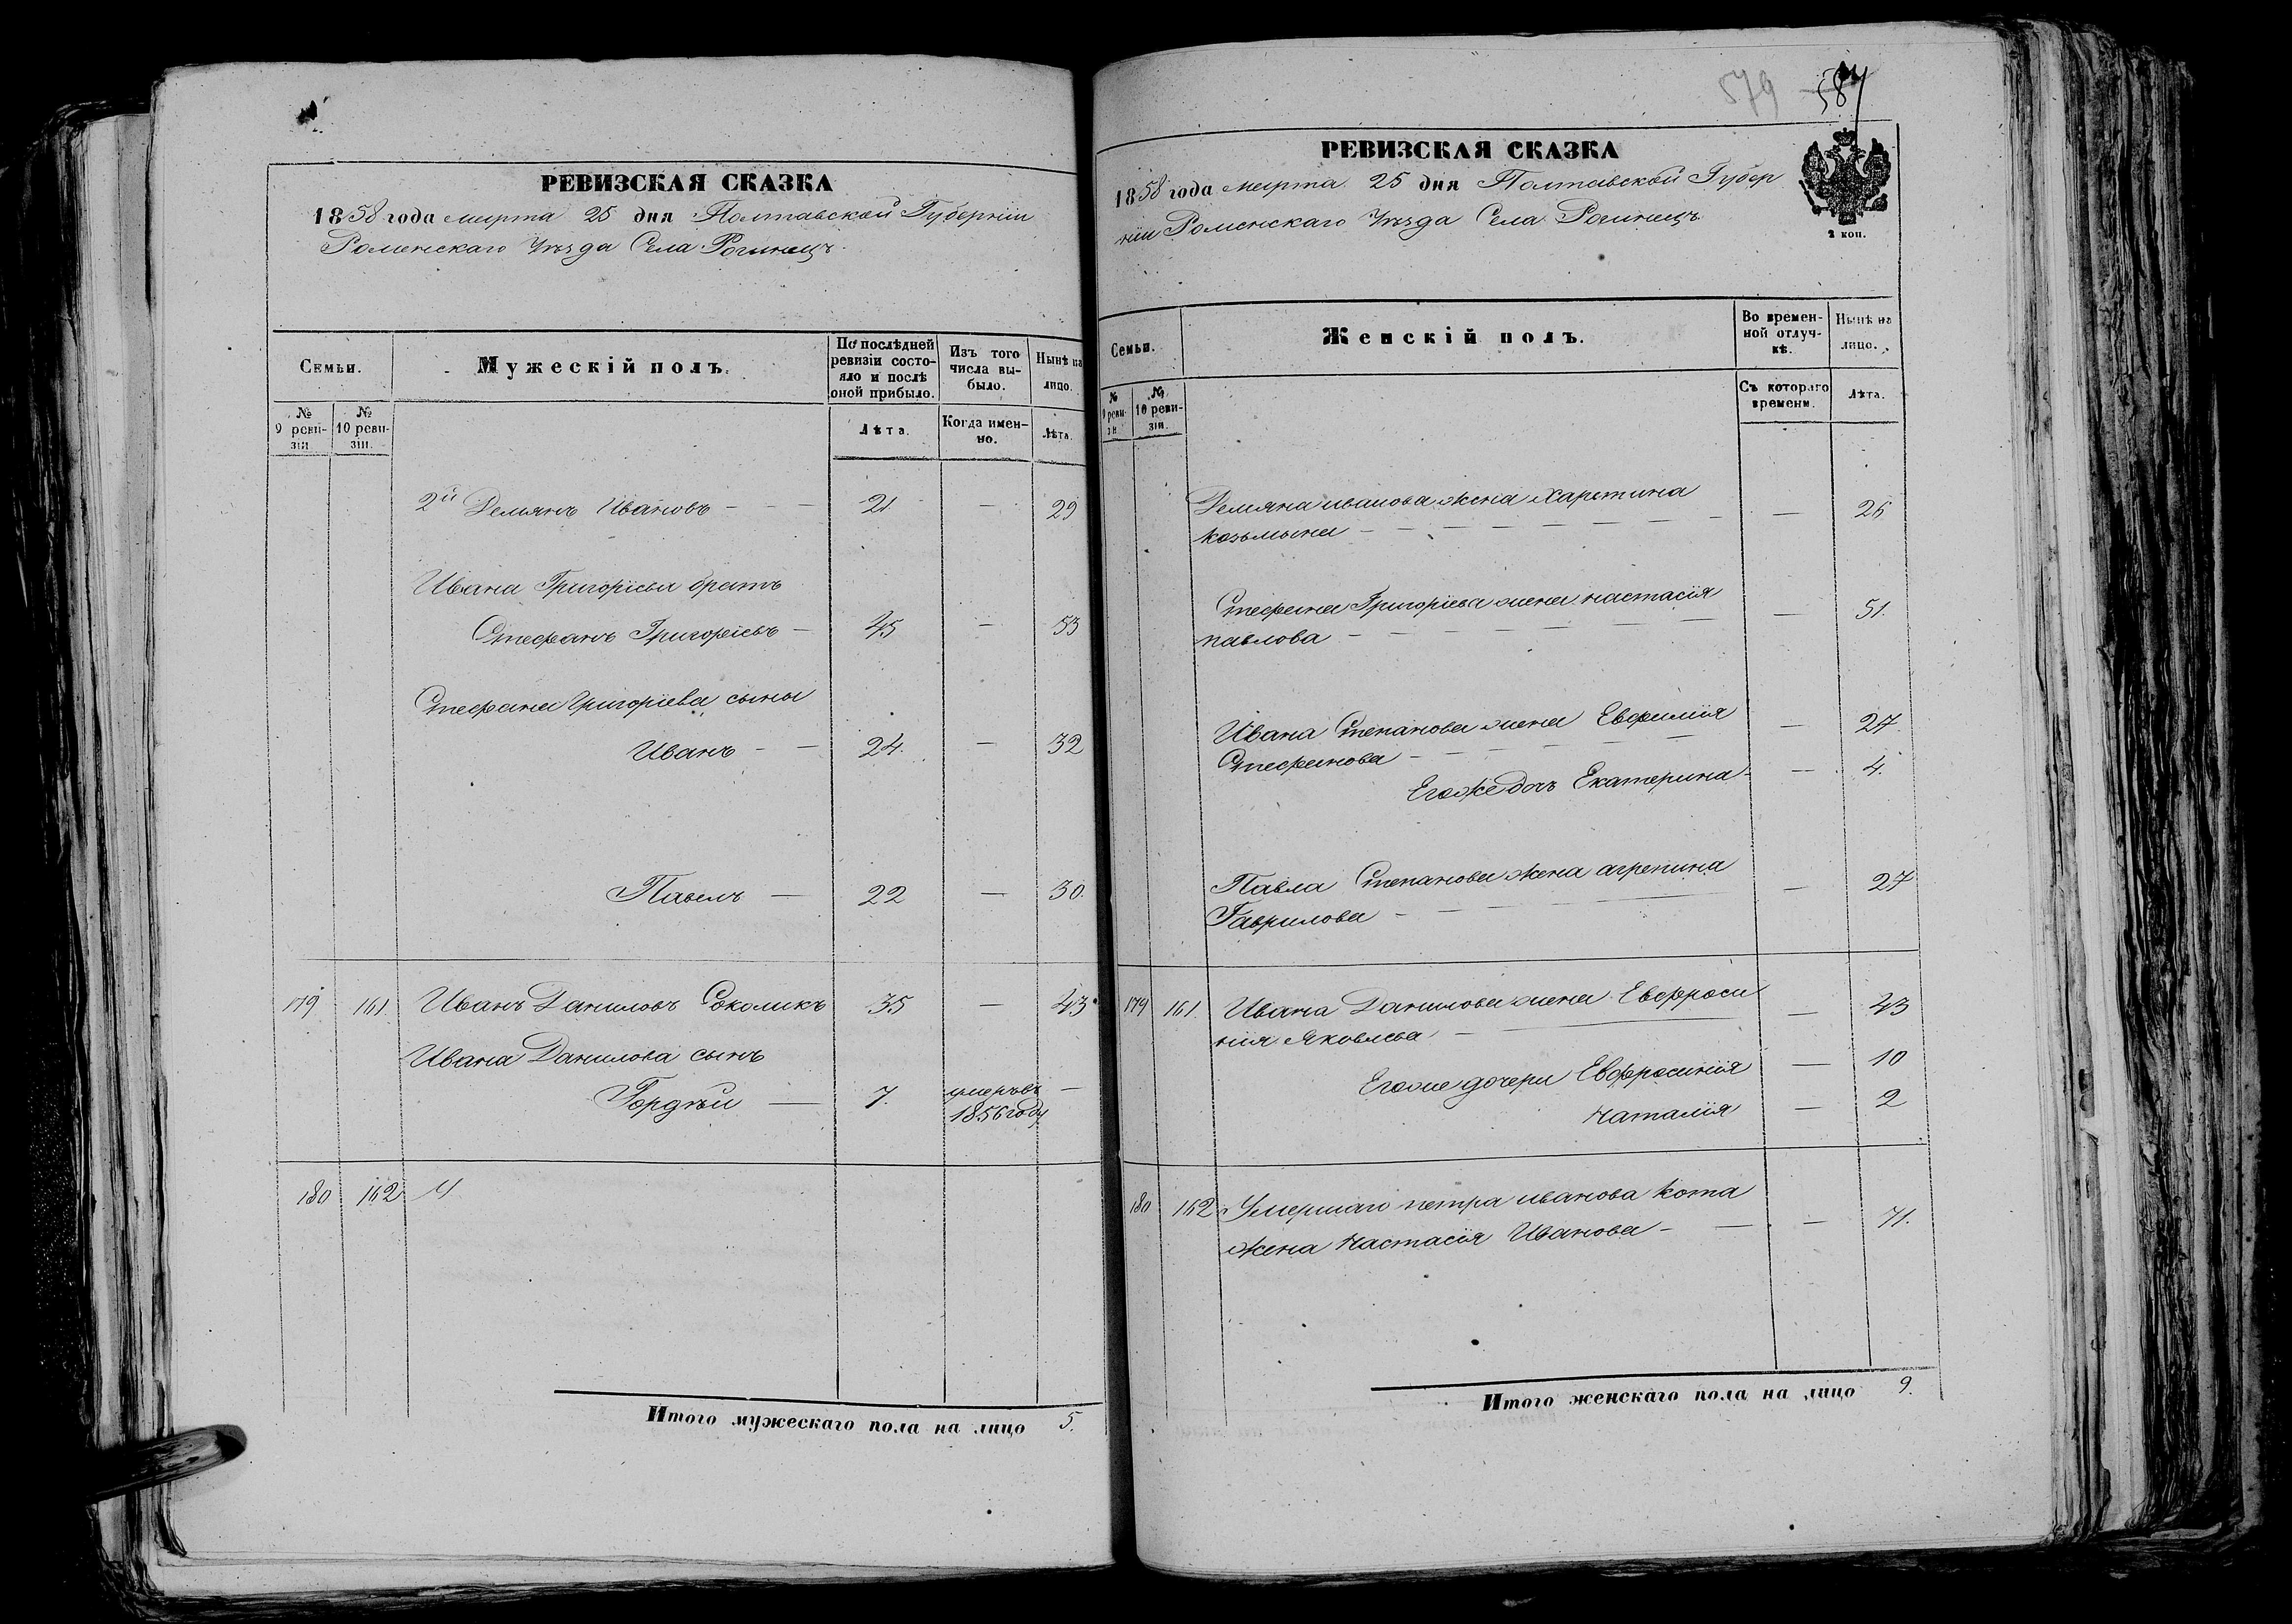 РЕВИЗСКАЯ СКАЗКА
1858 года марта 25 дня Полтавской Губерніи
Роменскаго Уѣзда Села Рогинецъ.
Семьи.
Мужескій полъ.
По послѣдней ревизіи состояло и послѣ оной прибыло.
Изъ того числа выбыло.
Нынѣ на лицо.
№ 9 ревизіи
№ 10 ревизіи.
Лѣта.
Когда именно.
Лѣта.
2й Демянъ Ивановъ - - - 21 - 29
Ивана Григоріева братъ
Стефанъ Григоріевъ - 45 - 53
Стефана Григоріева сыны
Иванъ - - 24 - 32
Павелъ - 22 - 30.
179 161 Иванъ Даниловъ Соколикъ 35 - 43
Ивана Данилова сынъ
Гордѣй - 7. умеръ въ -
1856 году
180 162 М
Итого мужескаго пола на лицо 5.
579 587
РЕВИЗСКАЯ СКАЗКА
1858 года марта 25 дня Полтавской Губер
ніи Роменскаго Уѣзда Села Рогинецъ
2 коп.
Семьи.
Женскій полъ.
Во временной отлучкѣ.
Нынѣ на лицо.
№ 9 ревизіи
№ 10 ревизіи.
Съ котораго времени.
Лѣта.
Демяна иванова жена Харетина
козьмына - - - - - - - 26
Стефана Григоріева жена настасія
павлова - - - - - - - 51.
Ивана Степанова жена Евфимія
Стефанова - - - - - - 27.
Егоже дочь Екатерина - - 4.
Павла Степанова жена агрепина
Гаврилова - - - - - 27
179 161 Ивана Данилова жена Евфроси
нія Яковлева - - - 43
Егоже дочери Евфросинія - 10
Наталія - 2
180 162 Умершаго петра иванова кота
жена Настасія Иванова - - - 71.
Итого женскаго пола на лицо 9.